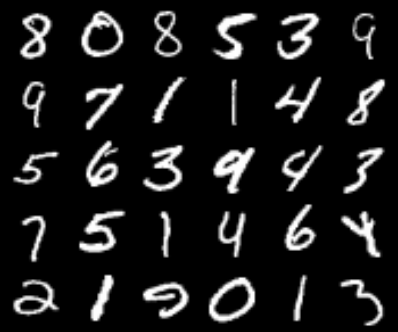 8 0 8 5 3 9
9 7 1 1 4 8
5 6 3 9 4 3
7 5 1 4 6 4
2 1 9 0 1 3